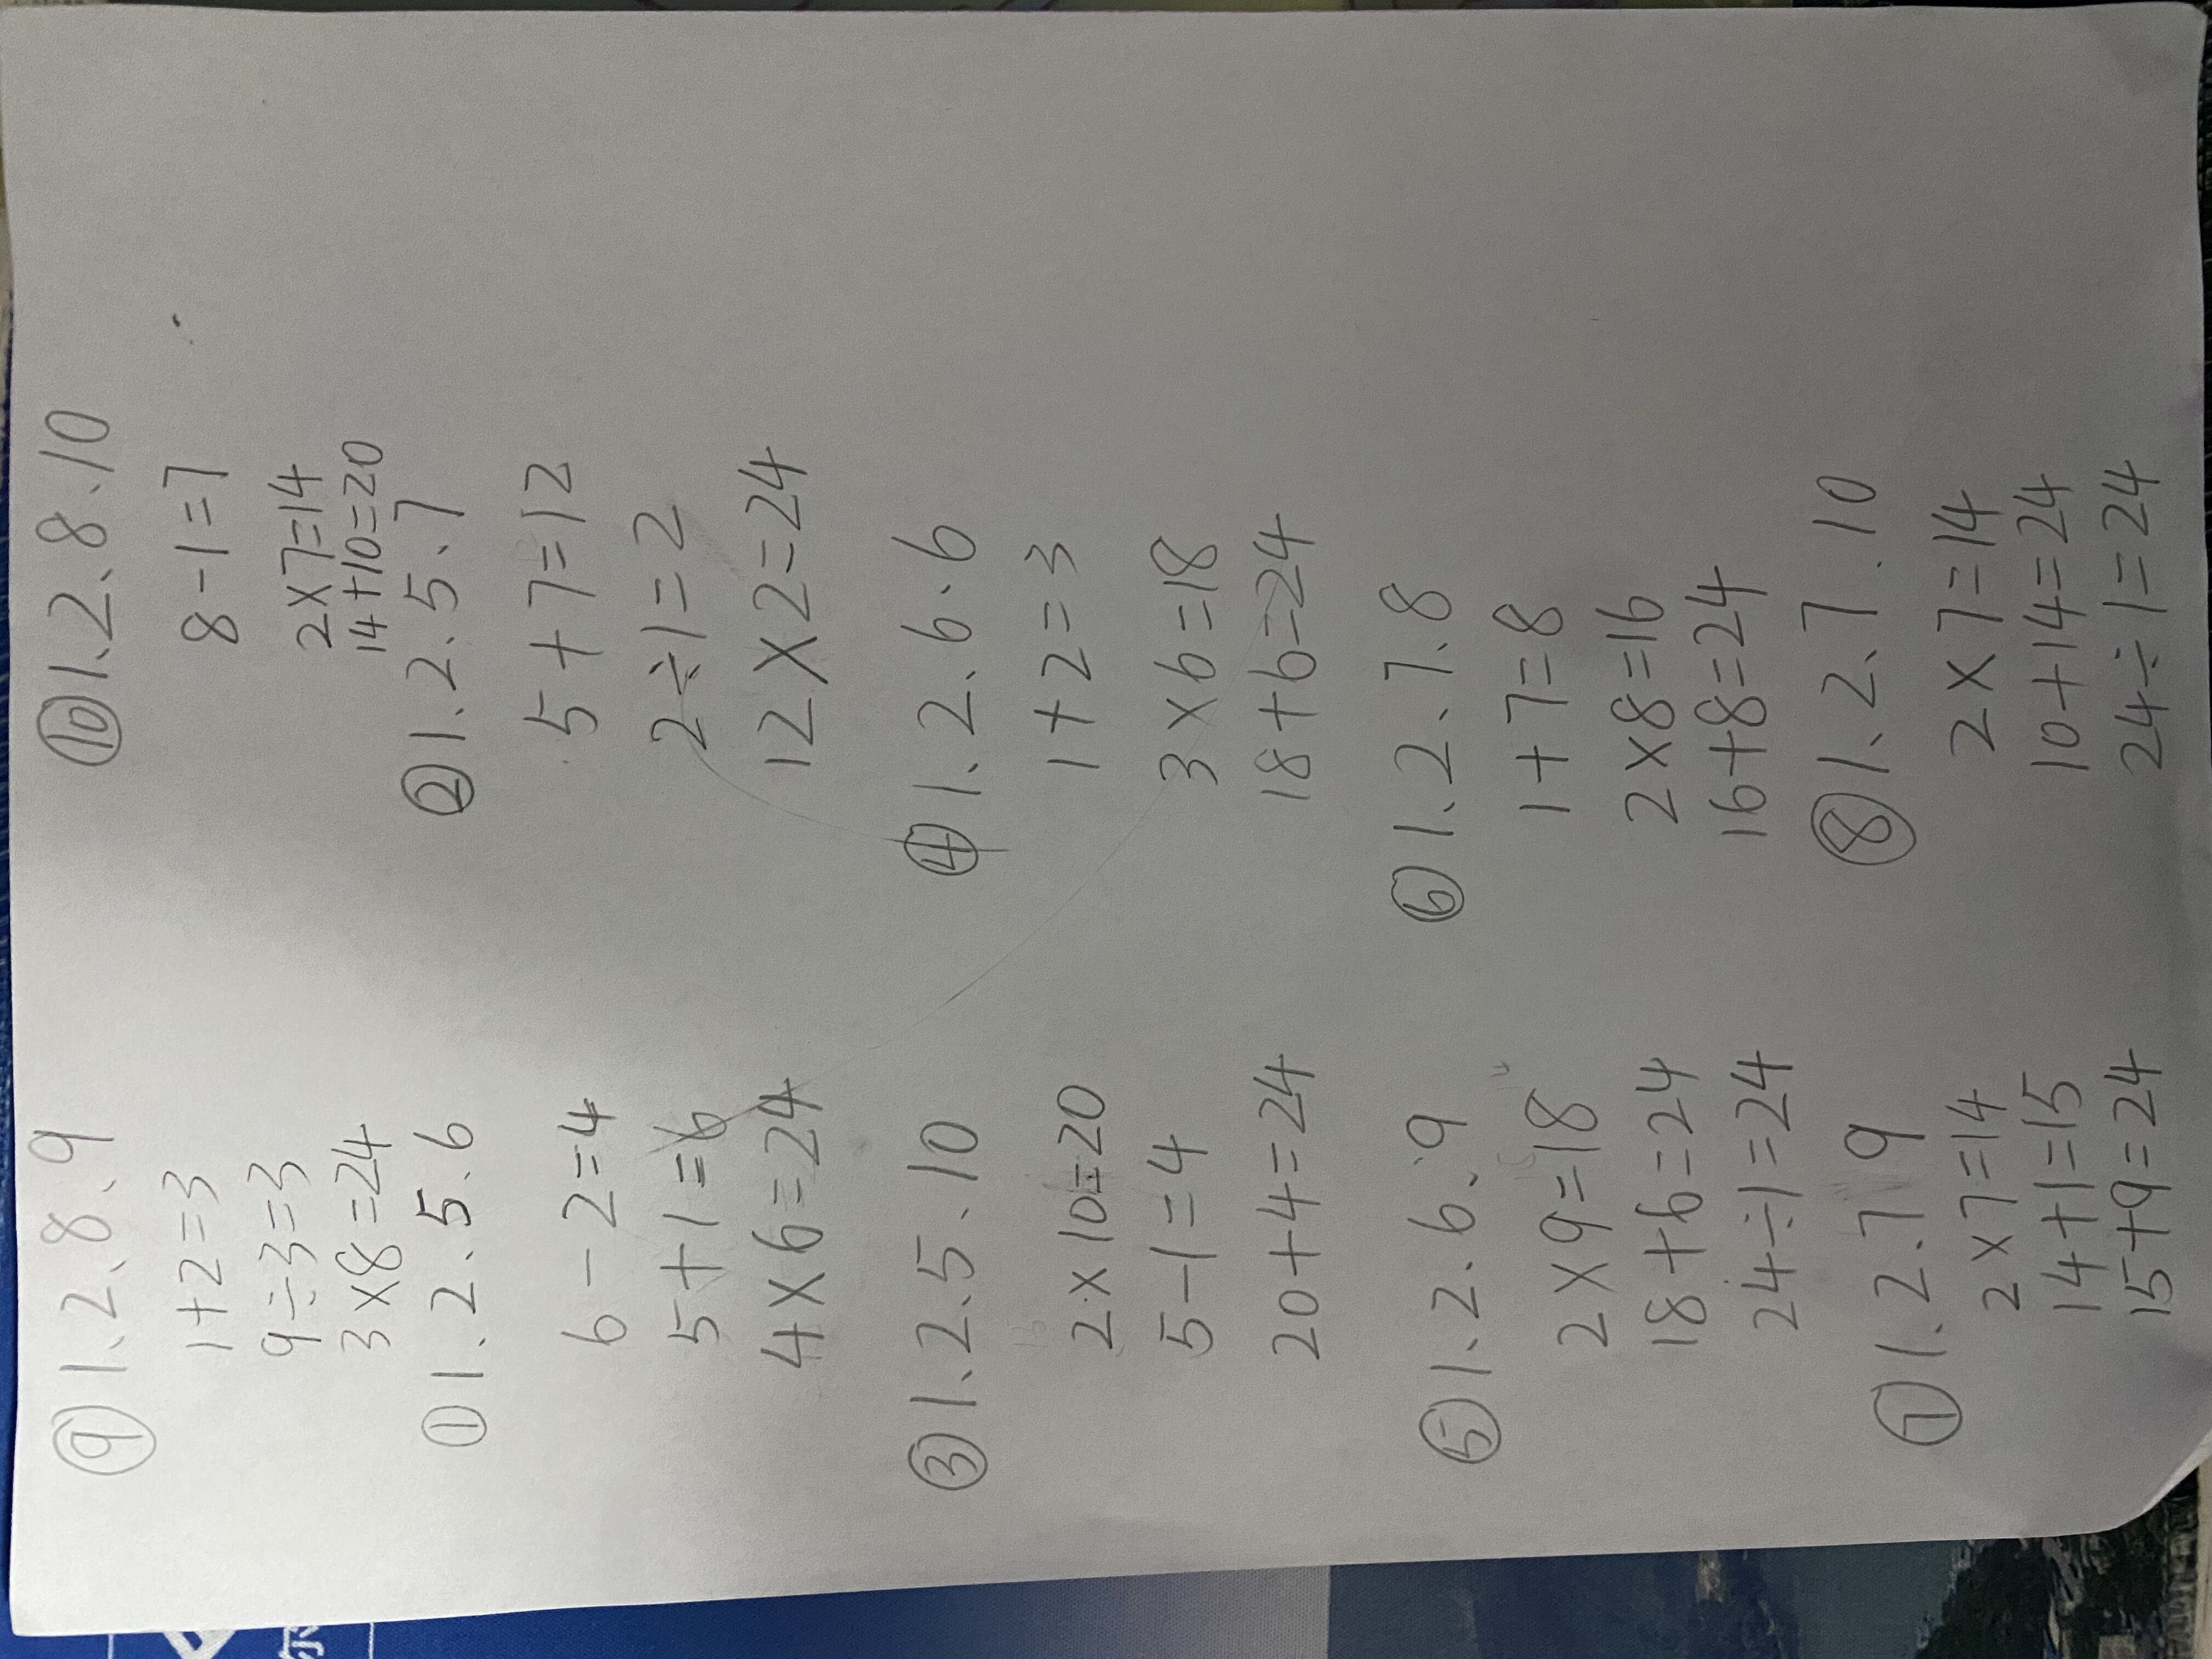 ⑨1、2、8、9
1+2=3
9÷3=3
3×8=24
⑩1、2、8、10
8-1=7
2×7=14
14+10=20
①1、2、5、6
6-2=4
5+1=6
4×6=24
②1、2、5、7
5+7=12
2÷1=2
12×2=24
③1、2、5、10
2×10=20
5-1=4
20+4=24
④1、2、6、6
1+2=3
3×6=18
18+6=24
⑤1、2、6、9
2×9=18
18+6=24
24÷1=24
⑥1、2、7、8
1+7=8
2×8=16
16+8=24
⑦1、2、7 9
2×7=14
14+1=15
15+9=24
⑧1、2、7、10
2×7=14
10+14=24
24÷1=24